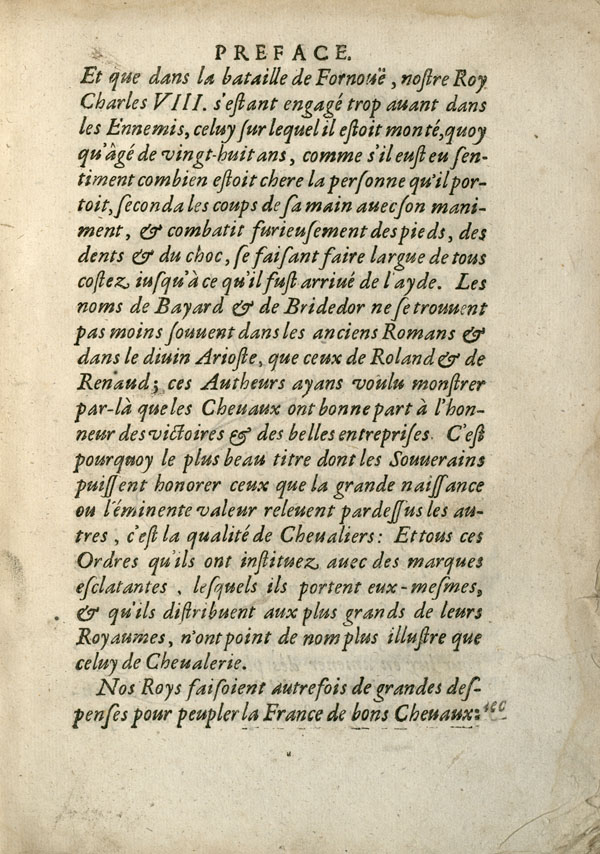 PREFACE.
Et que dans la bataille de Fornouë, noſtre Roy
Charles VIII. s'eſtant engagé trop auant dans
les Ennemis, celuy ſur lequel il eſtoit monté, quoy
qu'âgé de vingt-huit ans, comme s'il euſt eu ſen-
timent combien eſtoit chere la perſonne qu'il por-
toit, ſeconda les coups de ſa main auec ſon mani-
ment, & combatit furieuſement des pieds, des
dents & du choc, ſe faiſant faire largue de tous
coſtez iuſqu'à ce qu'il fuſt arriué de l'ayde. Les
noms de Bayard & de Bridedor ne ſe trouuent
pas moins ſouuent dans les anciens Romans &
dans le diuin Arioſte, que ceux de Roland & de
Renaud; ces Autheurs ayans voulu monſtrer
par-là que les Cheuaux ont bonne part à l'hon-
neur des victoires & des belles entrepriſes. C'eſt
pourquoy le plus beau titre dont les Souuerains
puiſſent honorer ceux que la grande naiſſance
ou l'éminente valeur releuent par deſſus les au-
tres, c'eſt la qualité de Cheualiers: Et tous ces
Ordres qu'ils ont inſtituez auec des marques
eſclatantes, leſquels ils portent eux-meſmes,
& qu'ils diſtribuent aux plus grands de leurs
Royaumes, n'ont point de nom plus illuſtre que
celuy de Cheualerie.
Nos Roys faiſoient autrefois de grandes deſ-
penſes pour peupler la France de bons Cheuaux: